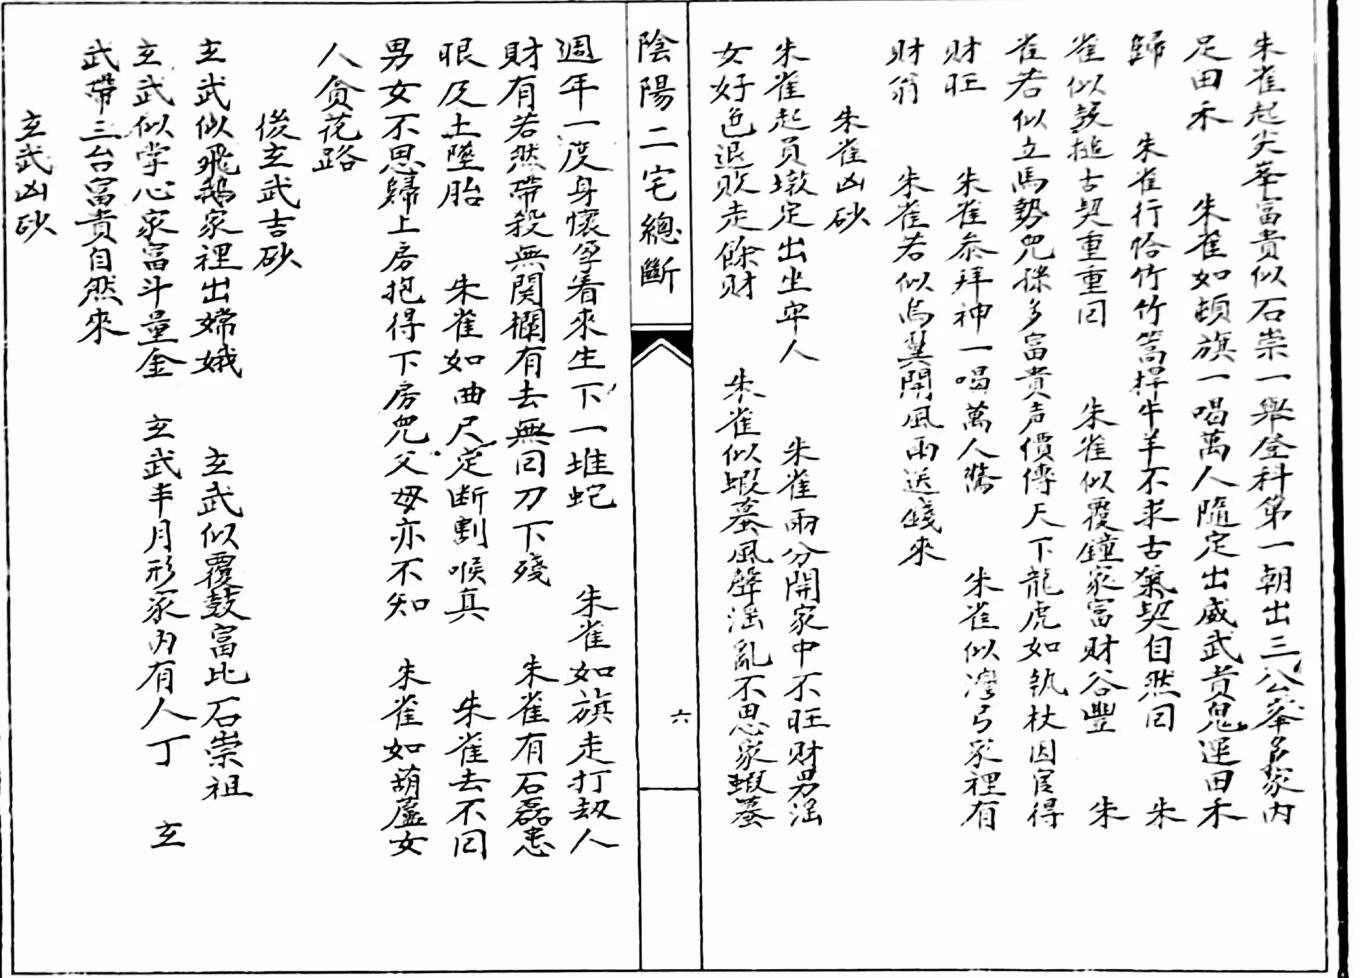 朱雀起尖峯富貴似石崇一舉登科第一朝出三公峯多家內
足田禾　朱雀如頓旗一喝萬人隨定出威武貴鬼運田禾
歸　朱雀行恰竹竹篙桿牛羊不求古氣契自然囙　朱
雀似鼓搥古契重重囙　朱雀似覆鐘家富財谷豐　朱
雀若似立馬勢兒孫多富貴声價傳天下龍虎如執杖因官得
財旺　朱雀叅拜神一喝萬人驚　朱雀似灣弓家裡有
財翁　朱雀若似鳥翼開風雨送錢來
朱雀凶砂
朱雀起員墩定出坐牢人　朱雀兩分開家中不旺財男滛
女好色退敗走餘財　朱雀似蝦蟇風聲滛亂不思家蝦蟇
陰陽二宅總斷
六
週年一度身懷孕看來生下一堆蛇　朱雀如旗走打劫人
財有若然帶殺無関欄有去無囙刀下殘　朱雀有石磊患
眼及土墜胎　朱雀如曲尺定断割喉真　朱雀去不囙
男女不思歸上房抱得下房兒父母亦不知　朱雀如葫蘆女
人貪花路
後玄武吉砂
玄武似飛鵝家裡出嫦娥　玄武似覆鼓富比石崇祖
玄武似掌心家富斗量金　玄武半月形家內有人丁　玄
武帶三台富貴自然來
玄武凶砂